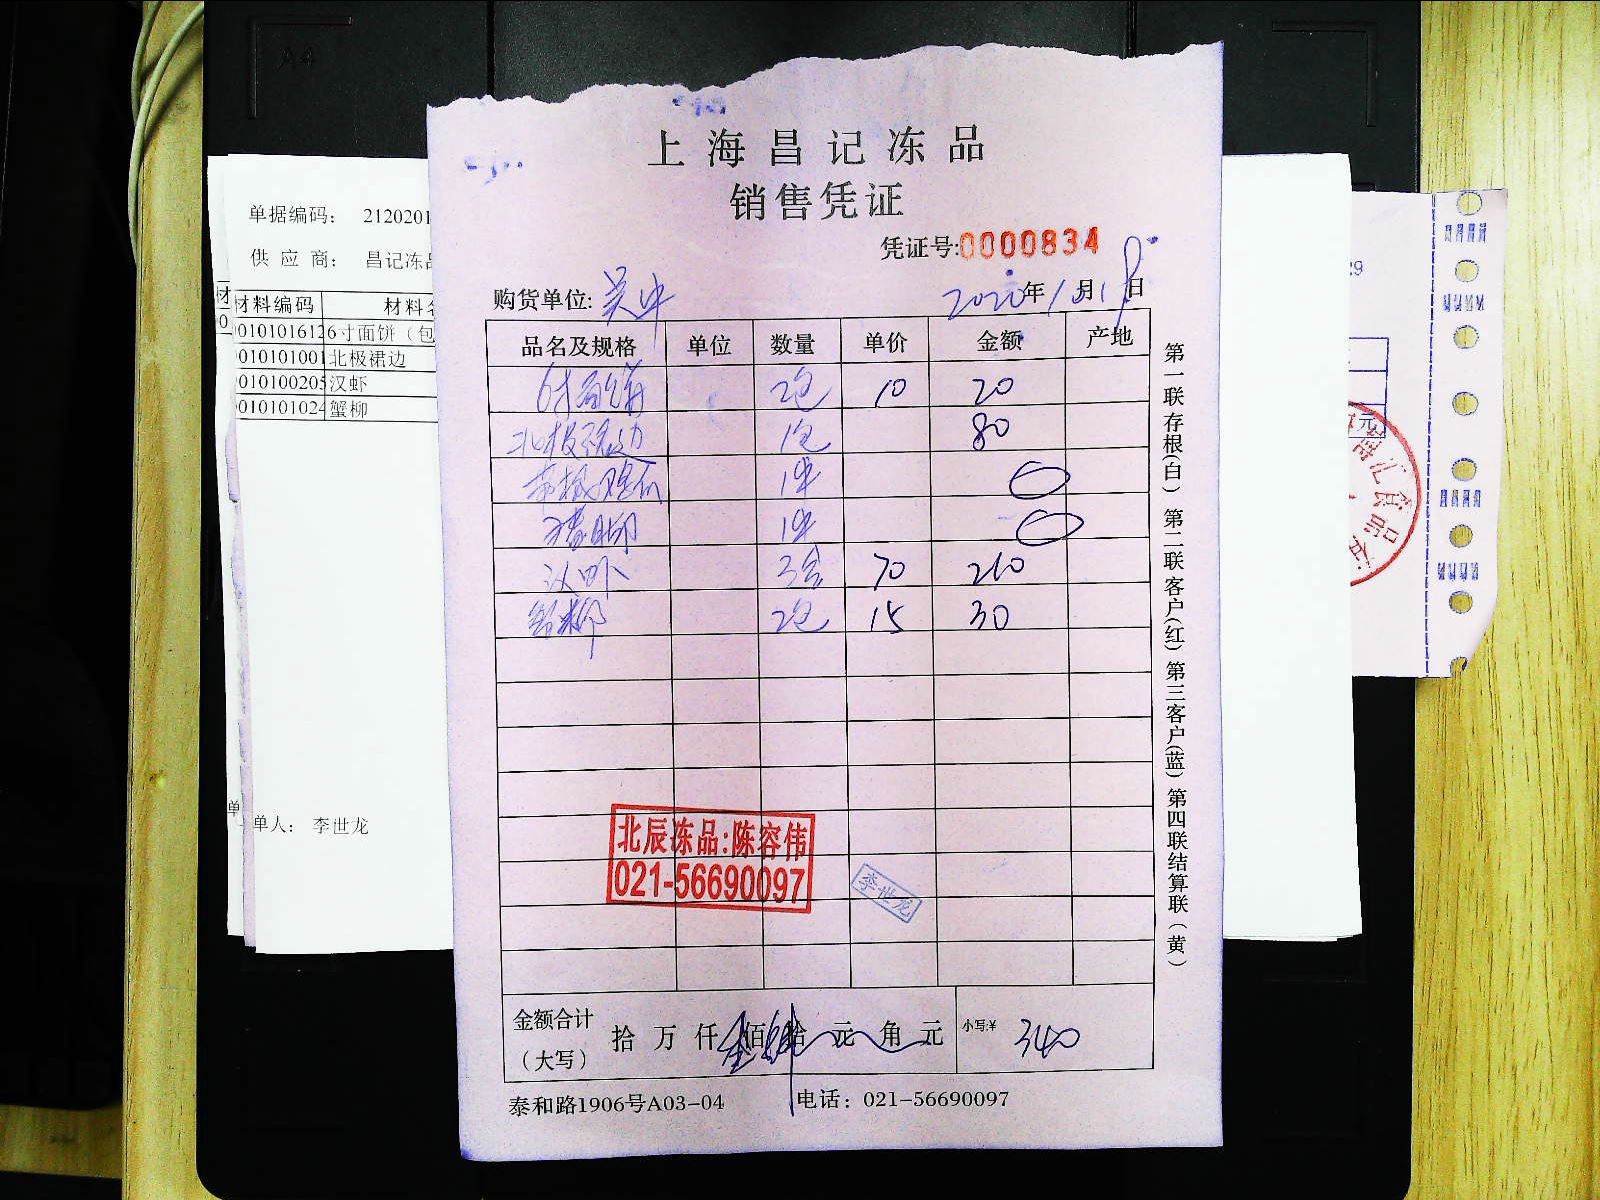 A4
上海昌记冻品
销售凭证
凭证号:0000834
购货单位: 吴中 2020年1月18日
品名及规格 单位 数量 单价 金额 产地
6寸面饼 2包 10 20
北极裙边 1包 80
1件 0
1件 0
汉虾 3盒 70 210
蟹柳 2包 15 30
北辰冻品:陈容伟
021-56690097
李世龙
金额合计（大写） 拾 万 仟 叁佰肆拾 元 角 元 小写:¥ 340
泰和路1906号A03-04 电话：021-56690097
第一联存根(白) 第二联客户(红) 第三客户(蓝) 第四联结算联(黄)
单据编码： 2120201
供应商： 昌记冻品
材料编码 材料名
01010161266寸面饼（包
0101010011北极裙边
010100205汉虾
010101024蟹柳
单人： 李世龙
29
元
博汇食品